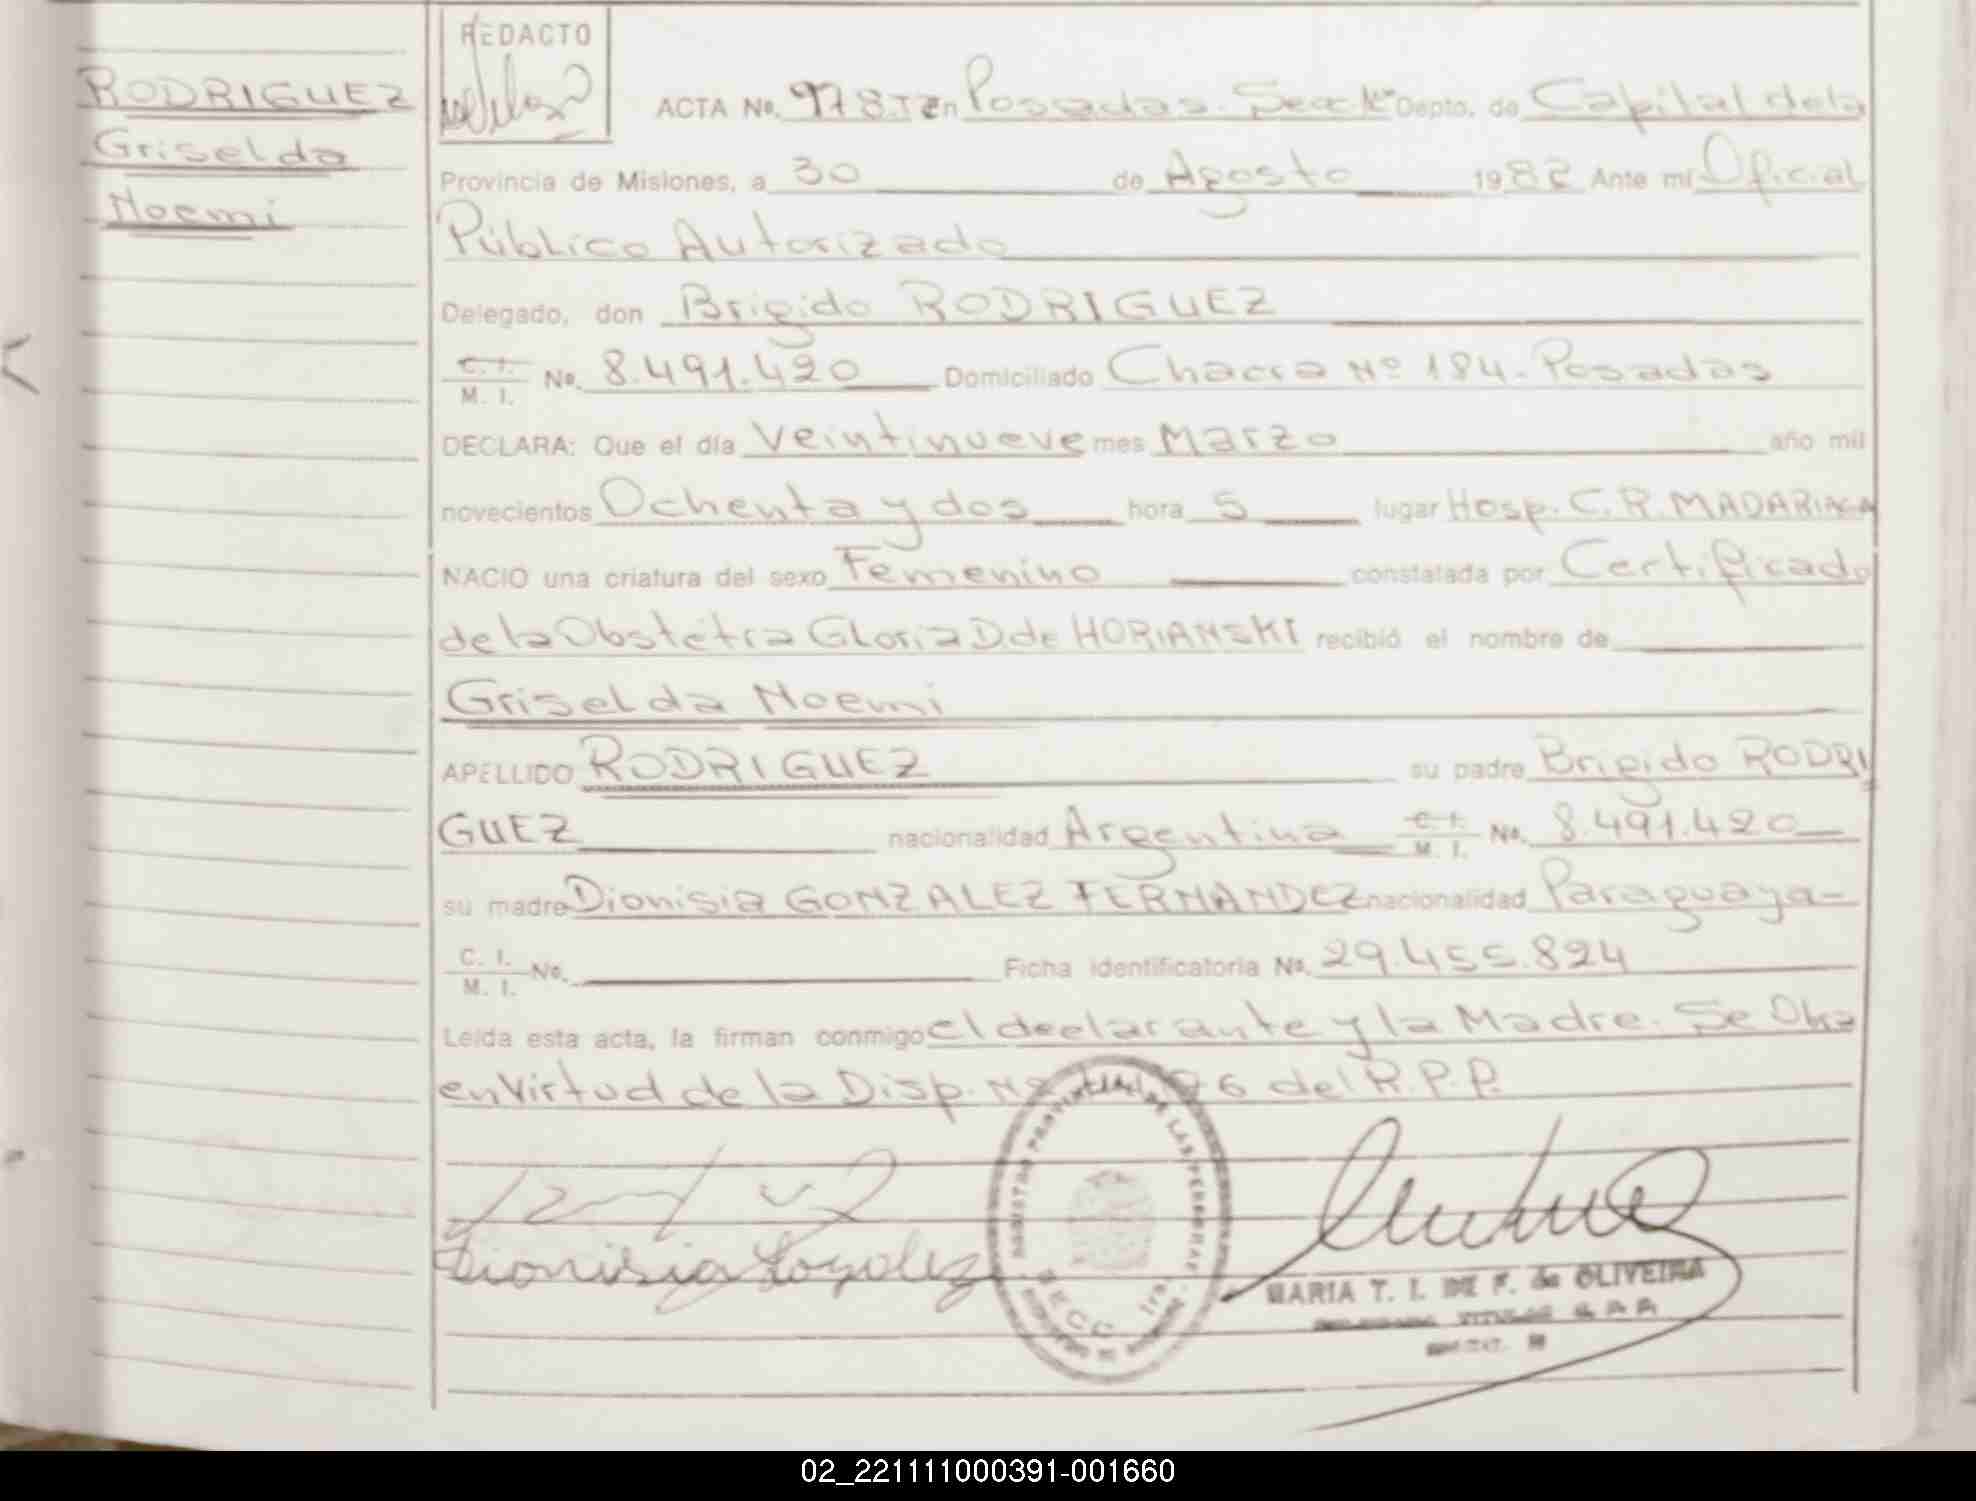 REDACTO
RODRIGUEZ
Griselda
Noemi
ACTA No. 978.TI En Posadas. Secc. 1ª Depto. de Capital de la
Provincia de Misiones, a 30 de Agosto 1982 Ante mí Oficial
Público Autorizado
Delegado, don Brigido RODRIGUEZ
C. I. M. I. No. 8.491.420 Domiciliado Chacra Nº 184. Posadas
DECLARA: Que el día Veintinueve mes Marzo año mil
novecientos Ochenta y dos hora 5 lugar Hosp. C. R. MADARIAGA
NACIO una criatura del sexo Femenino constatada por Certificado
de la Obstétra Gloria D. de HORIANSKI recibió el nombre de
Griselda Noemi
APELLIDO RODRIGUEZ su padre Brigido RODRI
GUEZ nacionalidad Argentina C. I. M. I. No. 8.491.420
su madre Dionisia GONZALEZ FERNANDEZ nacionalidad Paraguaya-
C. I. M. I. No. Ficha identificatoria No. 29.455.824
Leida esta acta, la firman conmigo el declarante y la Madre. Se
en Virtud de la Disp. Nº del R.P.P.
Dionisia Gozalez
REGISTRO PROVINCIAL DE LAS PERSONAS
SECC. 1ra.
MARIA T. I. DE F. de OLIVEIRA
TITULAR
02_221111000391-001660